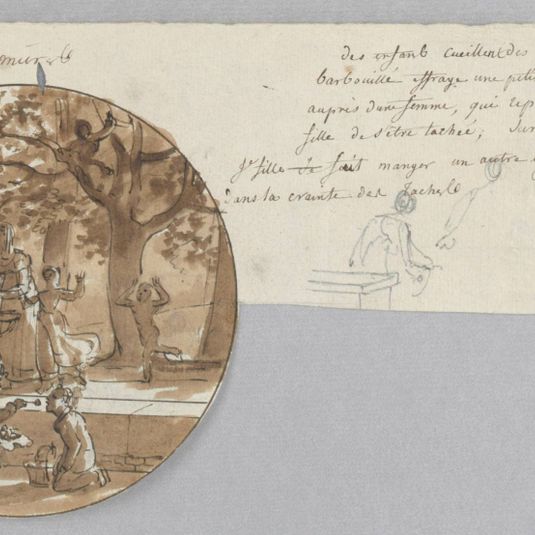 des enfants cueillent des
barbouillé effraye une petit
auprès d'une femme, qui rep
fille de s'être tachée; Sur
Jne fille fait manger un autre
dans la crainte des taches